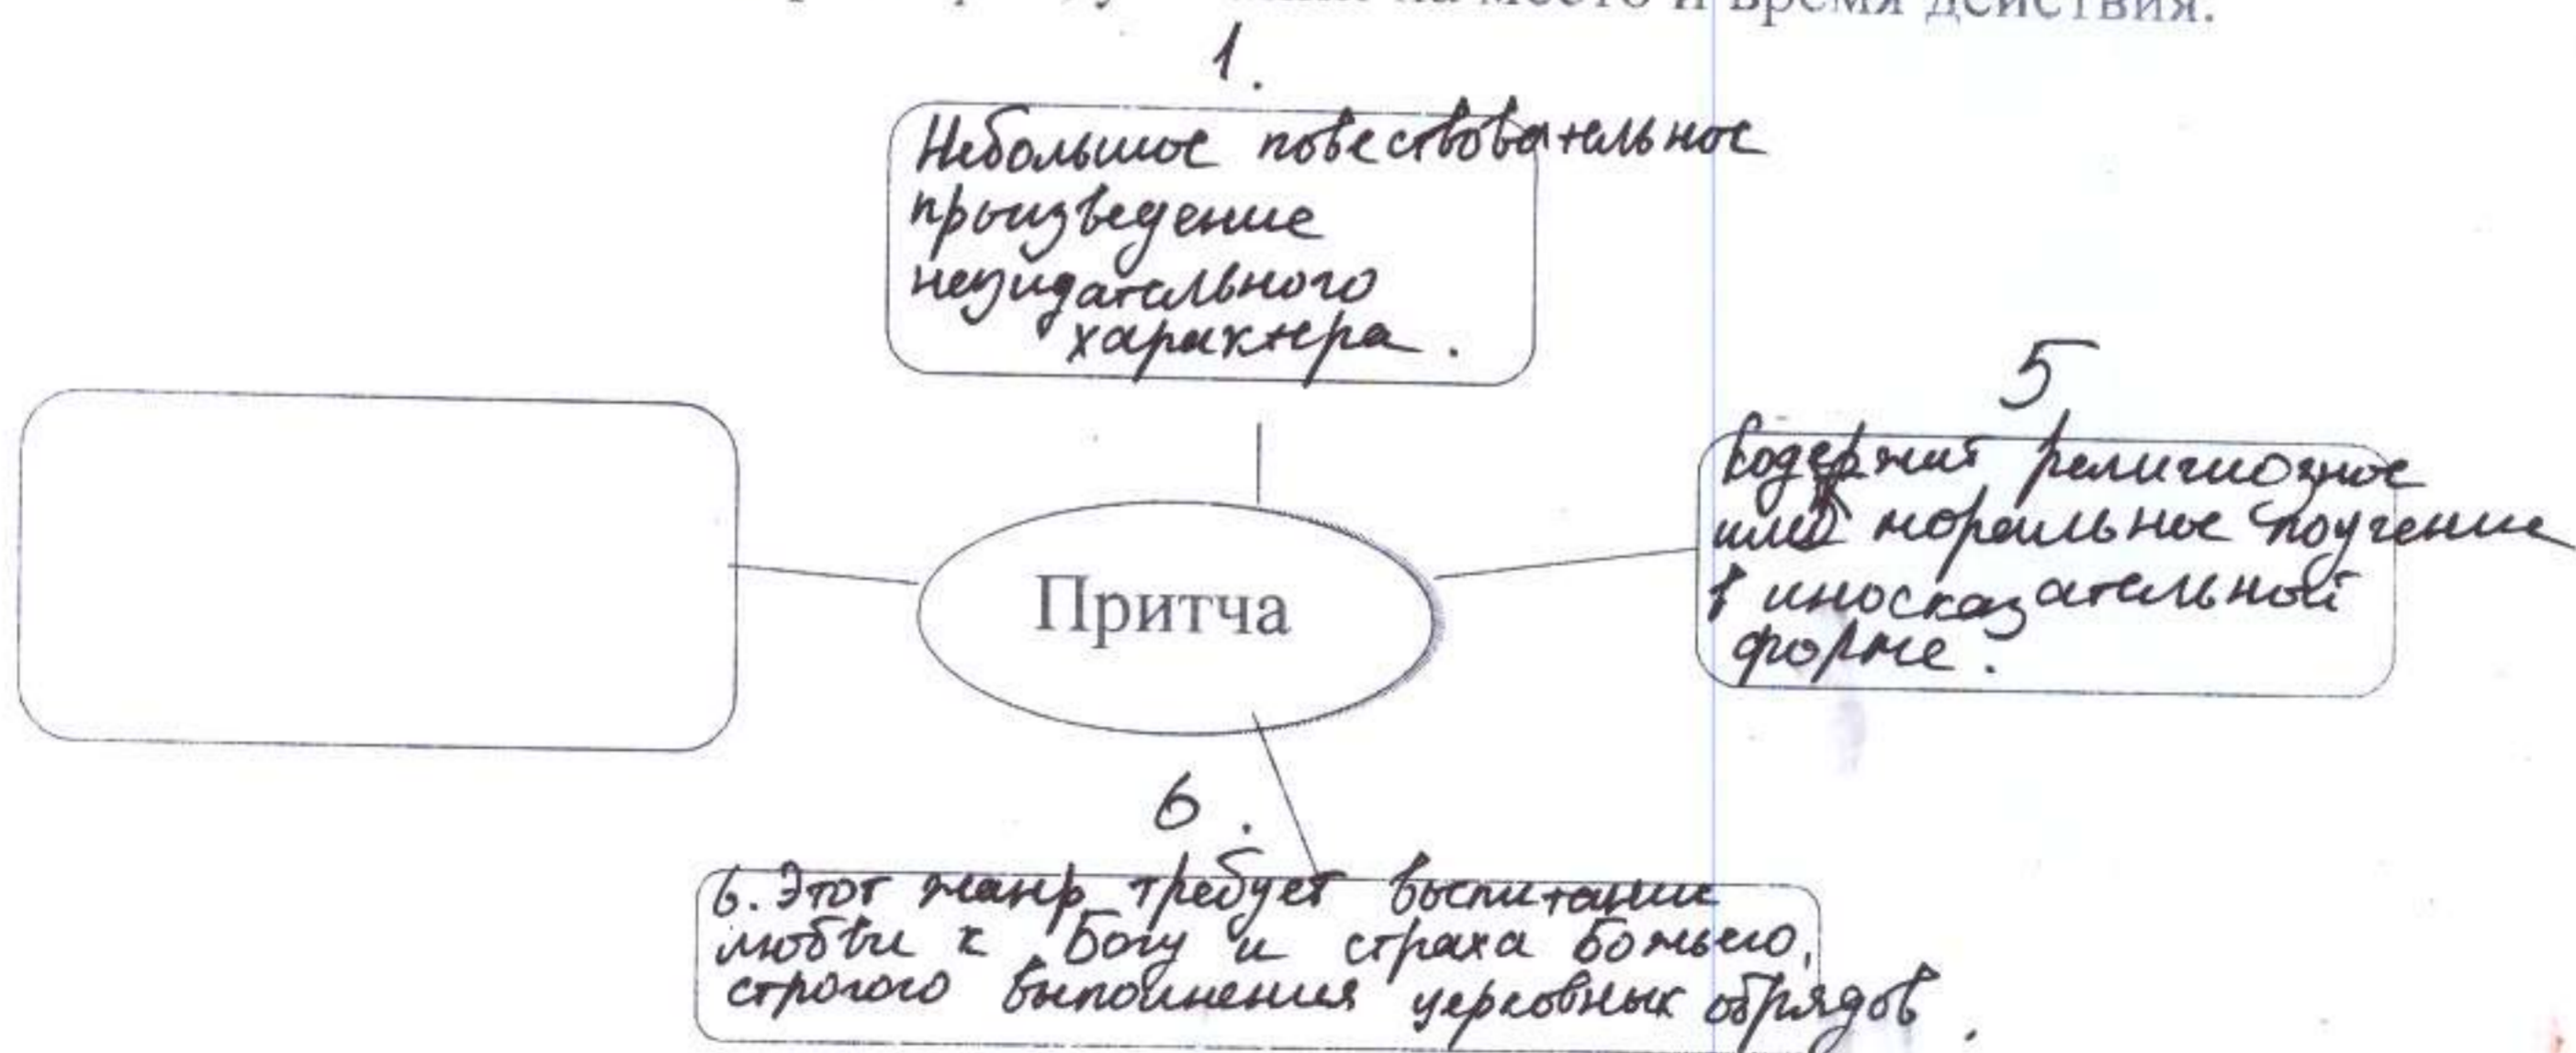 на место и время действия.
1.
Небольшое повествовательное
произведение
незидательного
характера.
5
Содержит религиозное
или моральное поучение
в иносказательной
форме.
Притча
6.
6. Этот жанр требует воспитание
любви к Богу и страха Божьего,
строгого выполнения церковных обрядов.